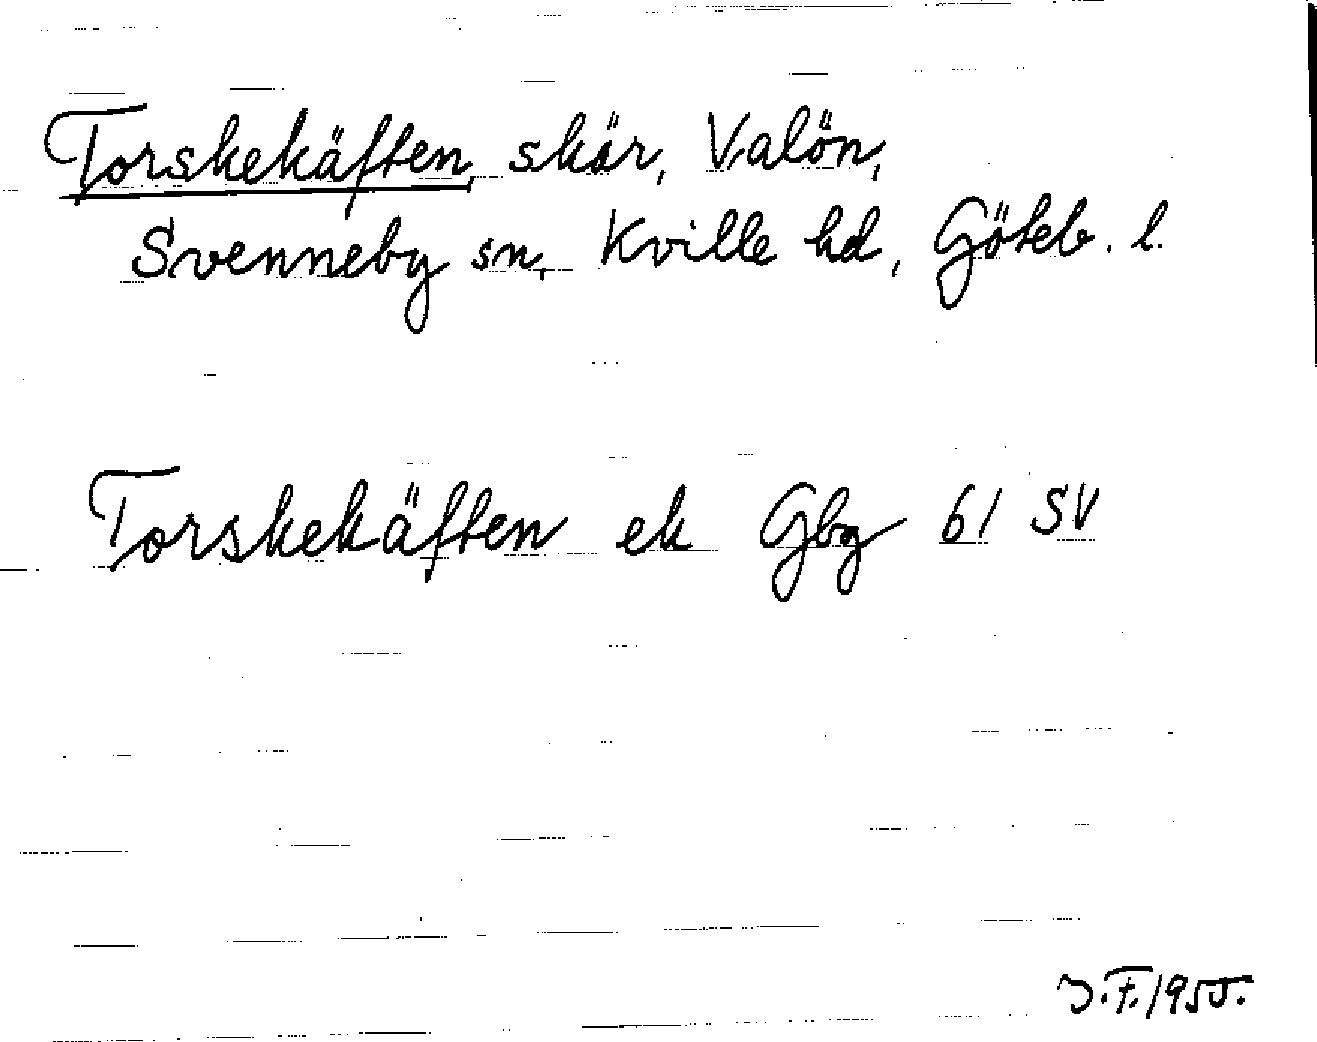 Torskekäften, skär, Valön,
Svenneby sn, Kville hd, Göteb. l.
Torskekäften ek Gbg 61 SV
J.F. 1955.